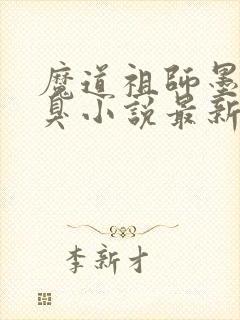 魔道祖師墨
臭小説最新
李新才